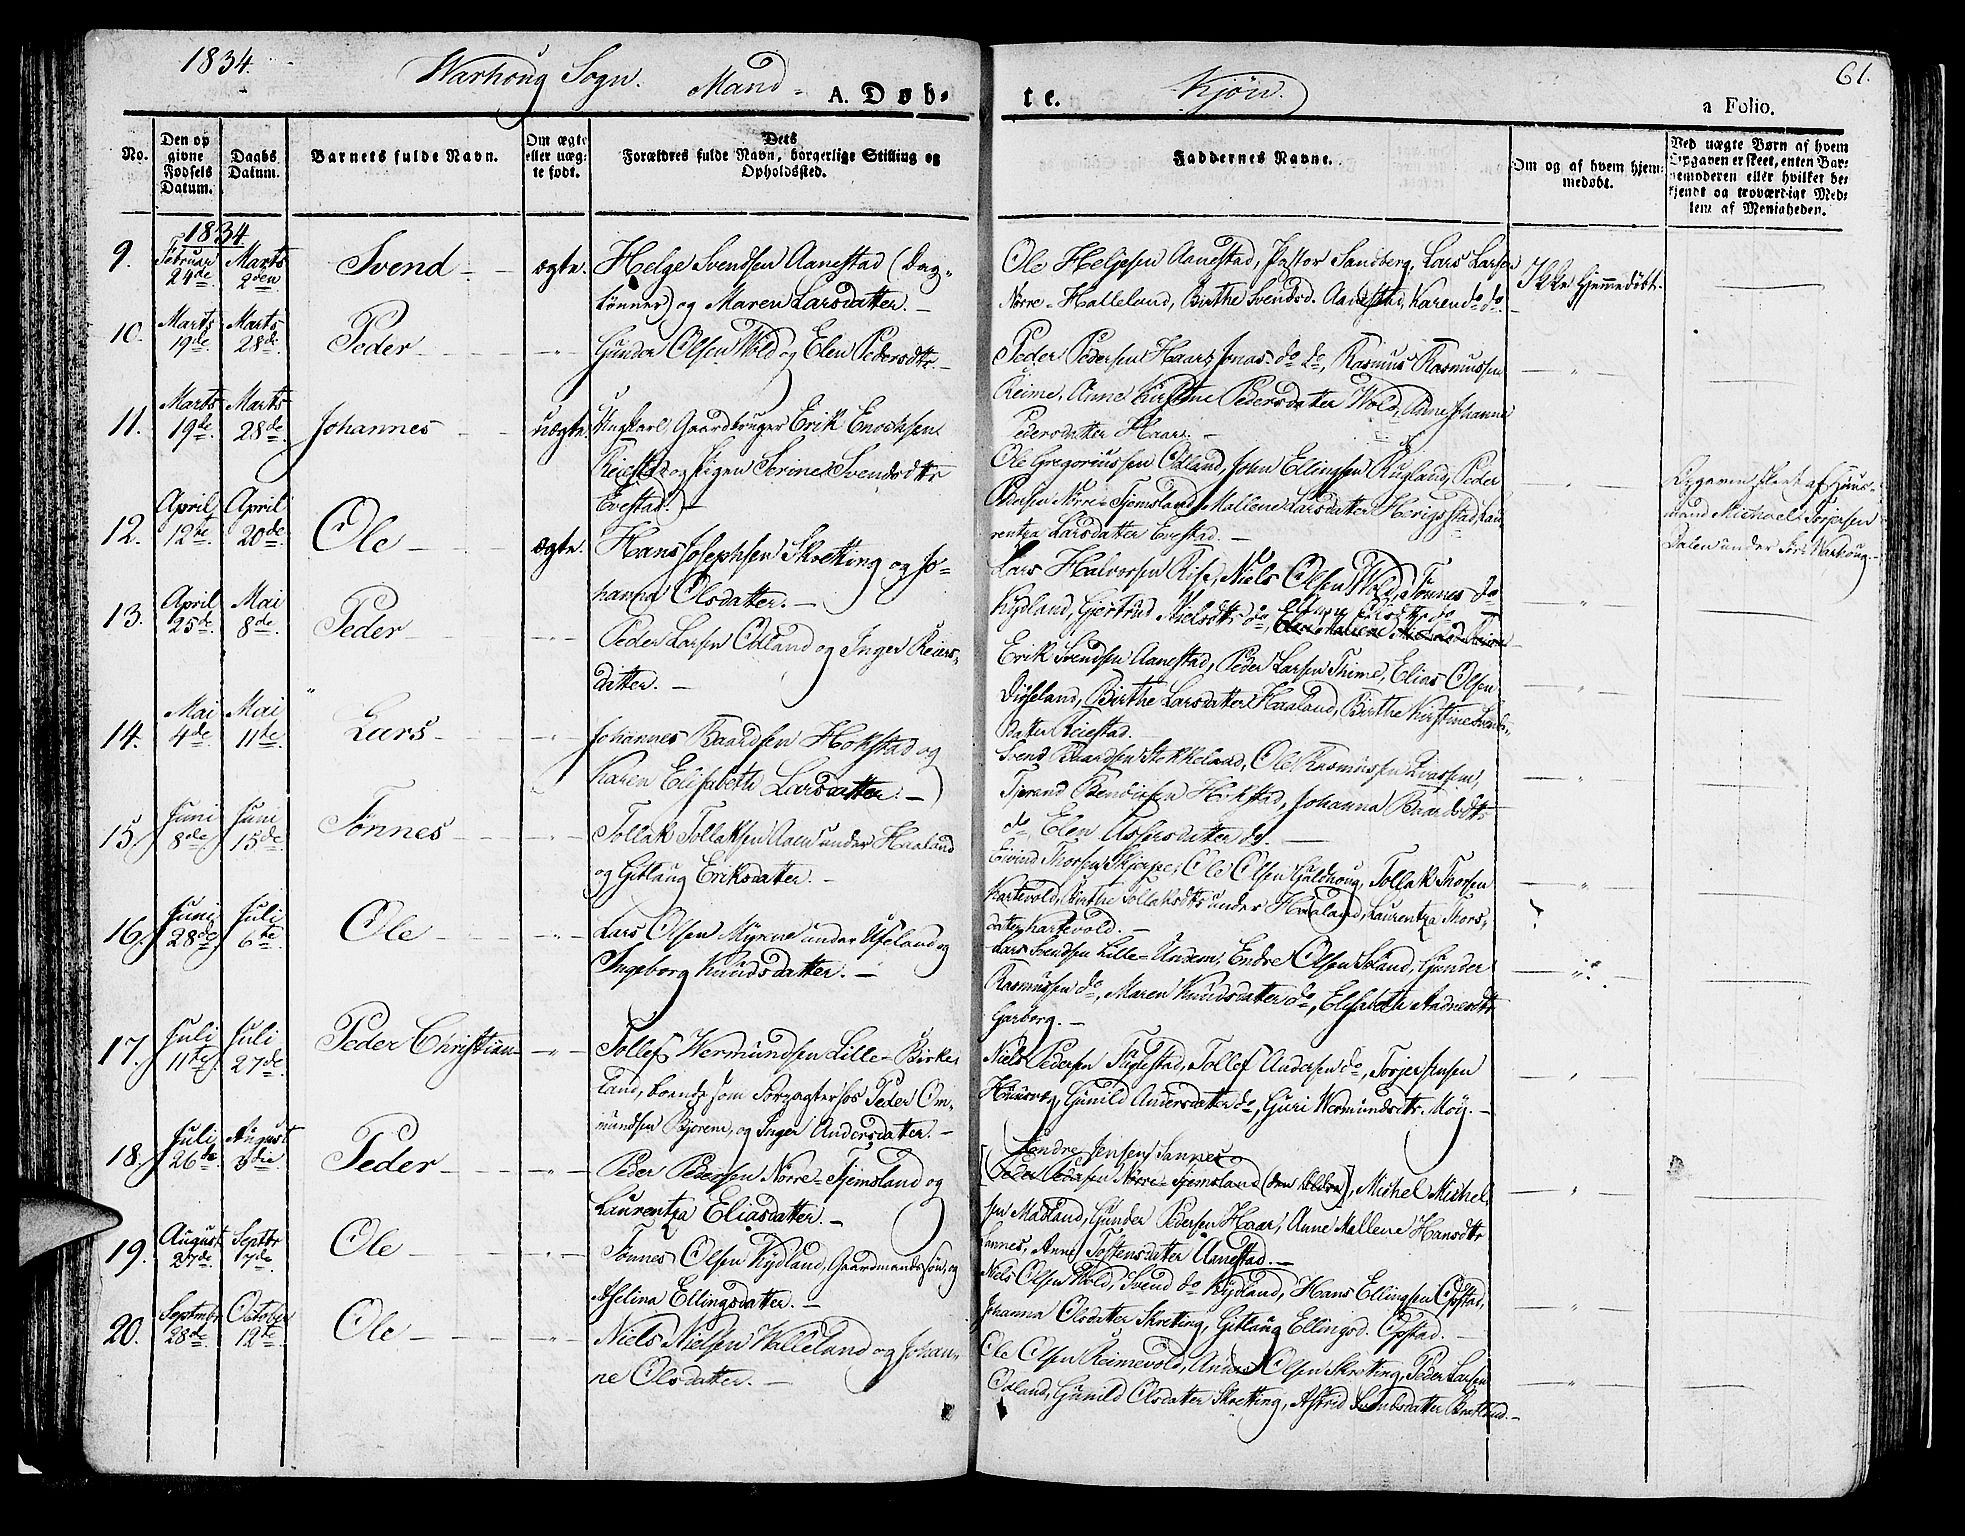 1834. Warhoug Sogn. Mand- A. Døb-
te. Kjøn. 61.
a Folio.
No. Den op givne Fødsels Datum. Daabs Datum. Barnets fulde Navn. Om ægte eller uæg- te født. Dets Forældres fulde Navn, borgerlige Stilling og Opholdssted.
Faddernes Navne. Om og af hvem hjem- medøbt. Ved uægte Børn af hvem Opgaven er skeet, enten Bar- nemoderen eller hvilket be- kjendt og troværdigt Med- lem af Menigheden.
1834
9. Februar 24de Marts 2den Svend ægte. Helge Svendsen Aanestad (Dag-
lønner) og Maren Larsdatter.
Ole Helgesen Aanestad, Pastor Sandberg, Lars Larsen
Nørre-Halleland, Birthe Svendsd. Aanestad, Karen do do
Ikke hjemmedøbt.
10. Marts 19de Marts 28de Peder " Gunder Olsen Wold og Elen Pedersdtr.
Peder Pedersen Haar, Jonas do do, Rasmus Rasmussen
Reime, Anne Kirstine Pedersdatter Wold, Anne Johanne
Pedersdatter Haar.
11. Marts 19de Marts 28de Johannes uægte. Ungkarl Gaardbruger Erik Enochsen
Reiestad og Pigen Serine Svendsdtr
Evestad.
Ole Gregoriussen Odland, John Ellingsen Rusland, Peder
Pedersen Nørre-Tjemsland, Mallene Larsdatter Herigstad, Lau-
rentza Larsdatter Evestad.
Opgaven skeet af Huus-
mand Michael Torjersen
Dalen under Søre Warhoug.
12. April 12te April 20de Ole ægte. Hans Josephsen Skretting og Jo-
hanna Olsdatter.
Lars Halvorsen Rise, Niels Olsen Wold, Tønnes do
Kydland, Gjertrud Nielsdtr do,
13. April 25de Mai 8de Peder " Peder Larsen Odland og Inger Reiers-
datter.
Erik Svendsen Aanestad, Peder Larsen Thime, Elias Olsen
Dysjeland, Birthe Larsdatter Haaland, Birthe Kirstine Svends-
datter Reiestad.
14. Mai 4de Mai 11te Lars " Johannes Baardsen Hokstad og
Karen Elisabeth Larsdatter.
Svend Baardsen Stokkeland, Ole Rasmussen
Tjerand Bendixsen Hokstad, Johanna Baardsdtr
do, Elen Assersdatter do.
15. Juni 8de Juni 15de Tønnes " Tollak Tollaksen Aaen under Haaland
og Gitlaug Eriksdatter.
Eivind Thorsen Skjerpe, Ole Olsen Guldhoug, Tollak Thorsen
Kartevold, Birthe Tollaksdtr under Haaland, Laurentza Thors-
datter Kartevold.
16. Juni 28de Juli 6te Ole " Lars Olsen Myrene under Ueland og
Ingeborg Knudsdatter.
Lars Svendsen Lille-Undem, Endre Olsen Skaad, Gunder
Rasmussen do, Maren Knudsdatter do, Elisabeth Andresdtr
Garborg.
17. Juli 11te Juli 27de Peder Christian " Tollef Wermundsen Lille-Birke-
land, boende som Forpagter hos Peder Om-
mundsen Bjorene, og Inger Andersdatter.
Niels Pedersen Fuglestad, Tollef Andersen do, Torjer Jensen
Gunild Andersdatter do, Guri Wermundsdtr. Moy.
18. Juli 26de August 3die Peder " Peder Pedersen Nørre-Tjemsland og
Laurentza Eliasdatter.
Sondre Jensen Sannes
(Peder Pedersen Nørre-Tjemsland (den Ældre)), Michel Michel-
sen Madland, Gunder Pedersen Haar, Anne Mallene Hansdtr
Sannes, Anne Tostensdatter Aanestad.
19. August 27de Septbr 17de Ole " Tønnes Olsen Kydland, Gaardmandssøn, og
Aselina Ellingsdatter.
Niels Olsen Wold, Svend do Kydland, Hans Ellingsen Opstad,
Johanna Olsdatter Skretting, Gitlaug Ellingsd. Opstad.
20. Septembr 28de October 12te Ole " Niels Nielsen Walleland og Johan-
ne Olsdatter.
Ole Olsen Reimevold, Anders Olsen Skretting, Peder Larsen
Odland, Gunild Olsdatter Skretting, Astrid